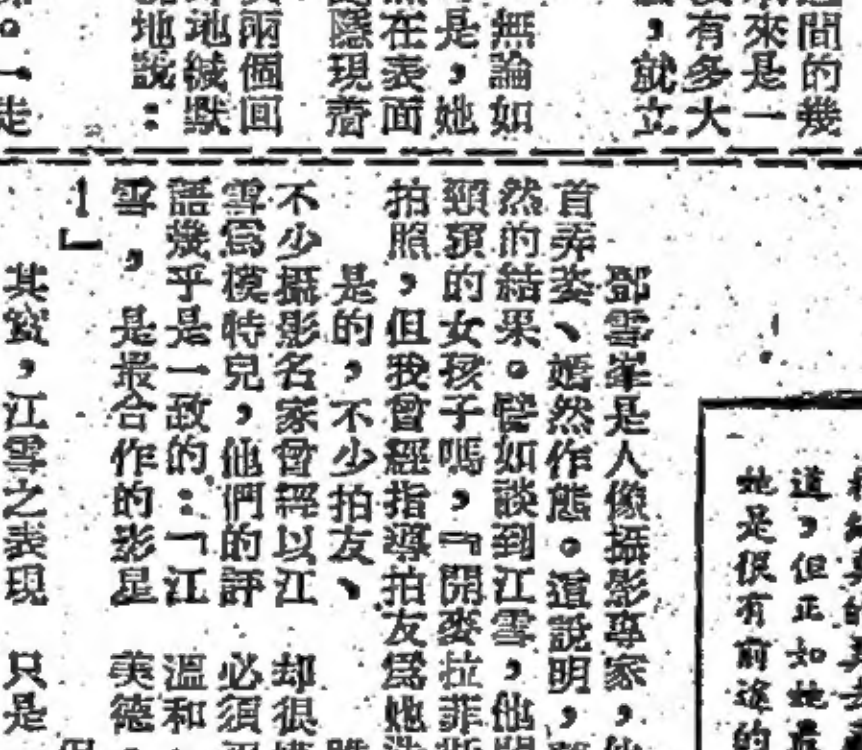 間的幾
來是一
有多大
,就立
無論如
是,她
在表面
隱現着
兩個回
地緘默
地說:
。一走
道,但正如她最
她是很有前途的
鄧雪峯是人像攝影專家,他
首弄姿、嫣然作態。這說明,
然的結果。譬如談到江雪,他
頸項的女孩子嗎,『開麥拉菲
拍照,但我曾經指導拍友爲她
是的,不少拍友、
不少攝影名家曾經以江
雪爲模特兒,他們的評
語幾乎是一致的:「江
雪,是最合作的影星
!」
其實,江雪之表現
却很
必須
溫和
美德
只是